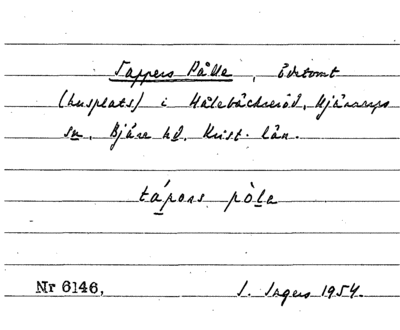 Tappers Pålle, Ödetomt
(husplats) i Hålebäckseröd, Hjärnarps
sn, Bjäre hd. Krist. län.
tápǝrs pòlǝ
Nr 6146. I. Ingers 1954.